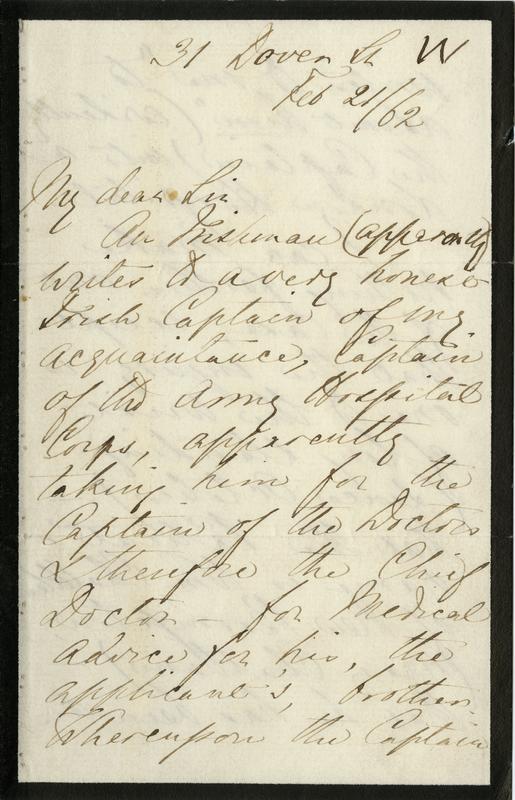 31 Dover St W
Feb 21/62
My dear Sir
An Irishman (apparently)
writes to a very honest
Irish Captain of my
acquaintance, Captain
of the Army Hospital
Corps, apparently
taking him for the
Captain of the Doctors
& therefore the Chief
Doctor – for Medical
advice for his, the
applicant's, brother.
Whereupon the Captain